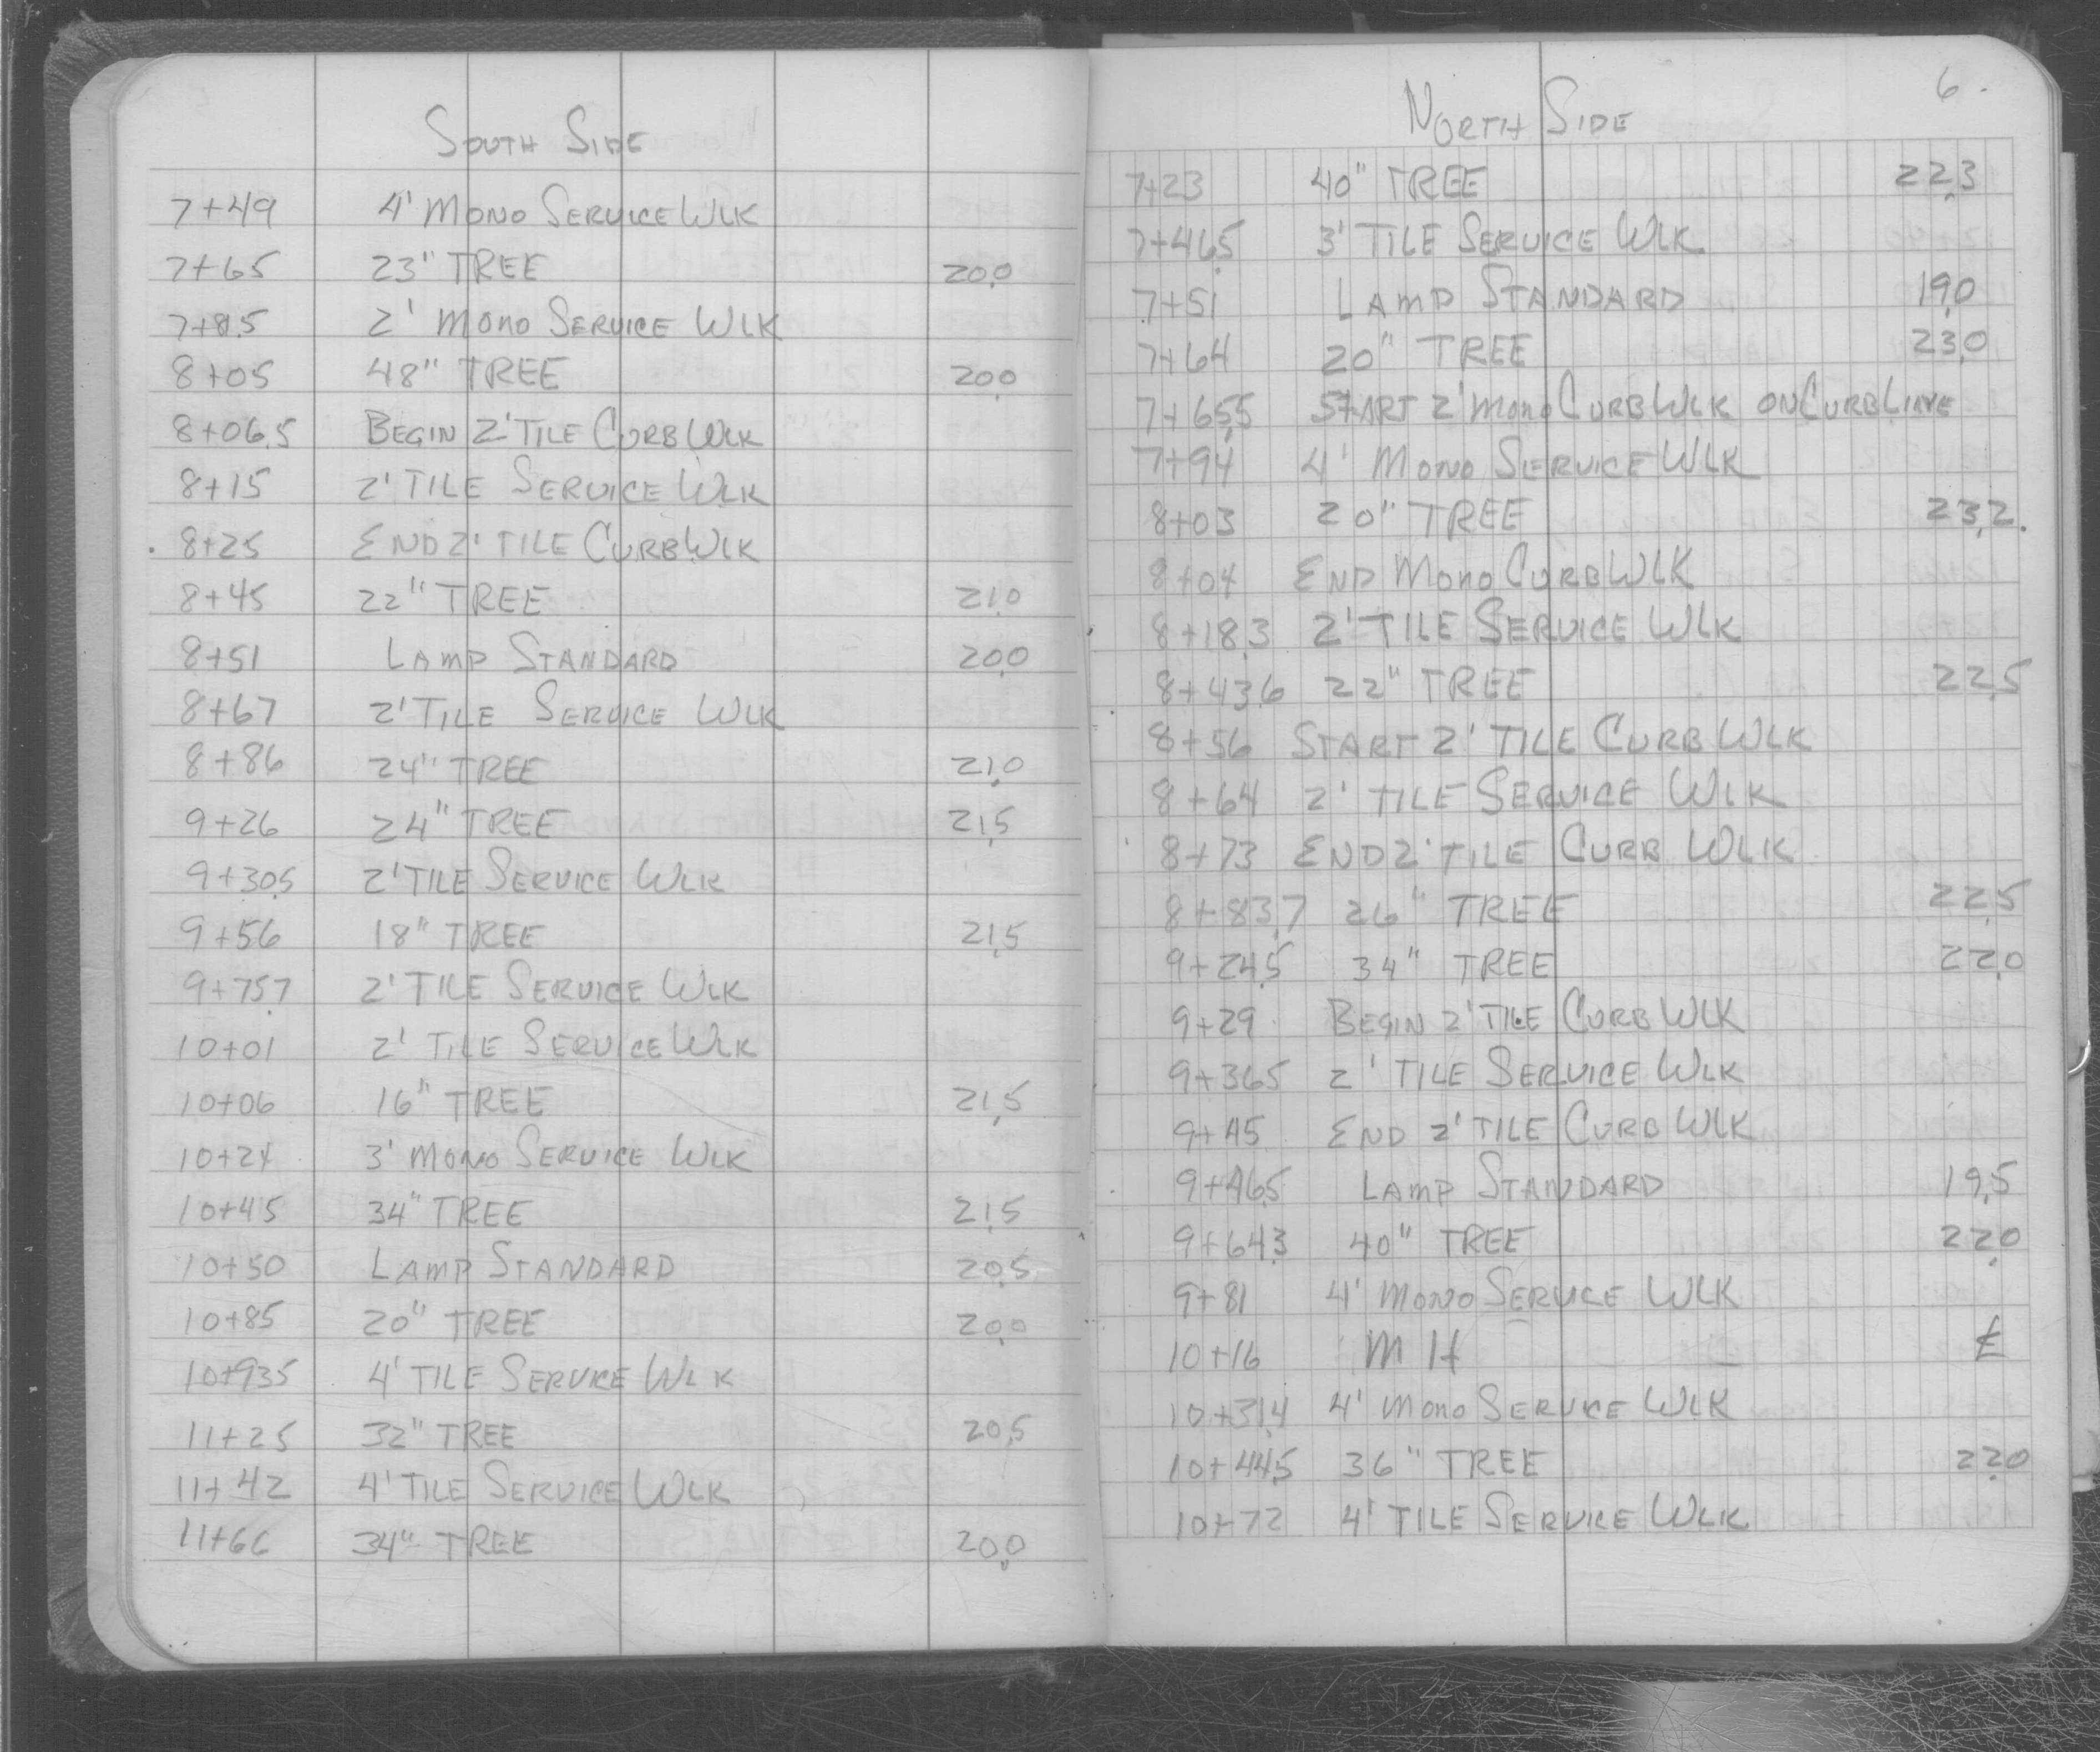 SOUTH SIDE
7+49 4' MONO SERVICE WLK
7+65 23" TREE 20.0
7+8.5 2' MONO SERVICE WLK
8+05 48" TREE 20.0
8+06.5 BEGIN 2' TILE CURB WLK
8+15 2' TILE SERVICE WLK
8+25 END 2' TILE CURB WLK
8+45 22" TREE 21.0
8+51 LAMP STANDARD 20.0
8+67 2' TILE SERVICE WLK
8+86 24" TREE 21.0
9+26 24" TREE 21.5
9+30.5 2' TILE SERVICE WLK
9+56 18" TREE 21.5
9+75.7 2' TILE SERVICE WLK
10+01 2' TILE SERVICE WLK
10+06 16" TREE 21.5
10+24 3' MONO SERVICE WLK
10+45 34" TREE 21.5
10+50 LAMP STANDARD 20.5
10+85 20" TREE 20.0
10+93.5 4' TILE SERVICE WLK
11+25 32" TREE 20.5
11+42 4' TILE SERVICE WLK
11+66 34" TREE 20.0
6.
NORTH SIDE
7+23 40" TREE 22.3
7+46.5 3' TILE SERVICE WLK
7+51 LAMP STANDARD 19.0
7+64 20" TREE 23.0
7+65.5 START 2' MONO CURB WLK ON CURB LINE
7+94 4' MONO SERVICE WLK
8+03 20" TREE 23.2
8+04 END MONO CURB WLK
8+18.3 2' TILE SERVICE WLK
8+43.6 22" TREE 22.5
8+56 START 2' TILE CURB WLK
8+64 2' TILE SERVICE WLK
8+73 END 2' TILE CURB WLK
8+83.7 26" TREE 22.5
9+24.5 34" TREE 22.0
9+29 BEGIN 2' TILE CURB WLK
9+36.5 2' TILE SERVICE WLK
9+45 END 2' TILE CURB WLK
9+46.5 LAMP STANDARD 19.5
9+64.3 40" TREE 22.0
9+81 4' MONO SERVICE WLK
10+16 MH ℄
10+31.4 4' MONO SERVICE WLK
10+44.5 36" TREE 22.0
10+72 4' TILE SERVICE WLK